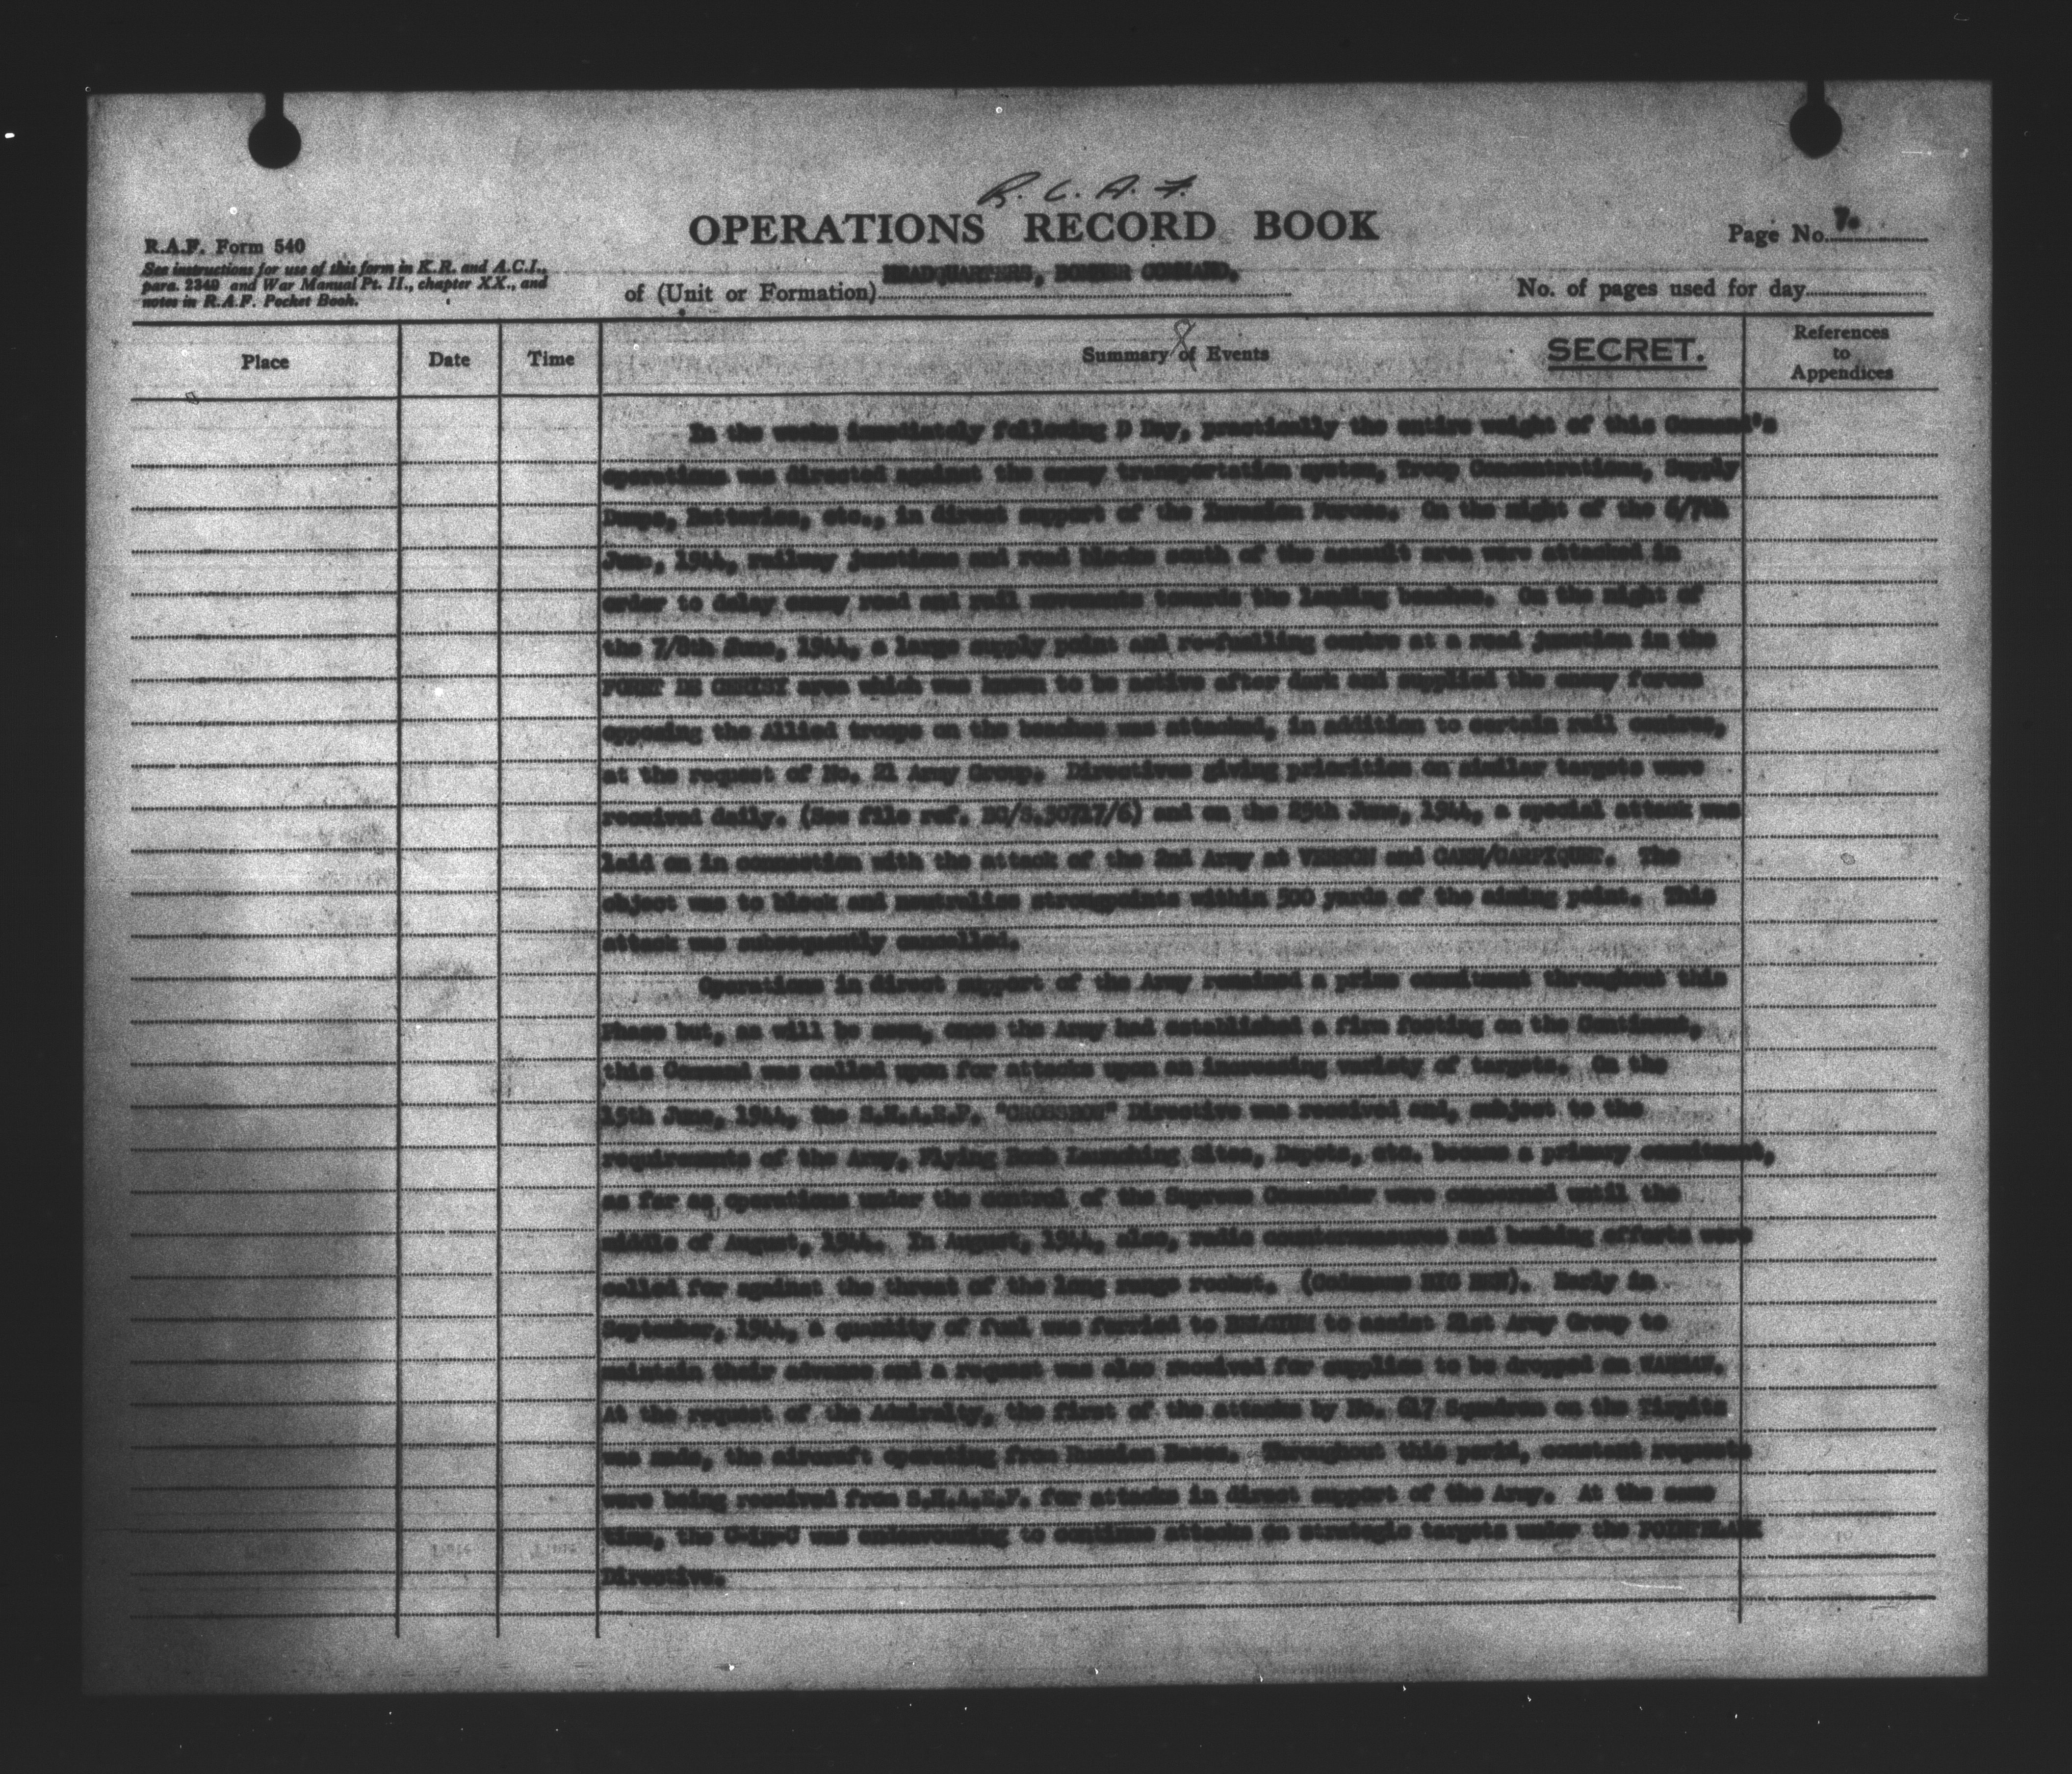 R. C. A. F.
OPERATIONS RECORD BOOK
Page No. 7.
R.A.F. Form 540
See instructions for use of this form in K.R. and A.C.I.,
para. 2349 and War Manual Pt. II., chapter XX., and
notes in R.A.F. Pocket Book.
of (Unit or Formation) HEADQUARTERS, BOMBER COMMAND.
No. of pages used for day
Place
Date
Time
Summary of Events
SECRET.
References
to
Appendices
In the weeks immediately following D Day, practically the entire weight of this Command's
operations was directed against the enemy transportation system, Troop Concentrations, Supply
Dumps, Batteries, etc., in direct support of the Invasion Forces. On the night of the 6/7th
June, 1944, railway junctions and road blocks south of the assault area were attacked in
order to delay enemy road and rail movements towards the landing beaches. On the night of
the 7/8th June, 1944, a large supply point and re-fuelling centre at a road junction in the
FORET DE CERISY area which was known to be active after dark and supplied the enemy forces
opposing the Allied troops on the beaches was attacked, in addition to certain rail centres,
at the request of No. 21 Army Group. Directives giving priorities on similar targets were
received daily. (See file ref. BC/S.30717/6) and on the 25th June, 1944, a special attack was
laid on in connection with the attack of the 2nd Army at VERSON and CAEN/CARPIQUET. The
object was to block and neutralise strongpoints within 500 yards of the aiming point. This
attack was subsequently cancelled.
Operations in direct support of the Army remained a prime commitment throughout this
Phase but, as will be seen, once the Army had established a firm footing on the Continent,
this Command was called upon for attacks upon an increasing variety of targets. On the
15th June, 1944, the S.H.A.E.F. "CROSSBOW" Directive was received and, subject to the
requirements of the Army, Flying Bomb Launching Sites, Depots, etc. became a primary commitment,
as far as operations under the control of the Supreme Commander were concerned until the
middle of August, 1944. In August, 1944, also, radio countermeasures and bombing efforts were
called for against the threat of the long range rocket. (Codename BIG BEN). Early in
September, 1944, a quantity of fuel was ferried to BELGIUM to assist 21st Army Group to
maintain their advance and a request was also received for supplies to be dropped on WARSAW.
At the request of the Admiralty, the first of the attacks by No. 617 Squadron on the Tirpitz
was made, the aircraft operating from Russian Bases. Throughout this period, constant requests
were being received from S.H.A.E.F. for attacks in direct support of the Army. At the same
time, the C-in-C was endeavouring to continue attacks on strategic targets under the POINTBLANK
Directive.